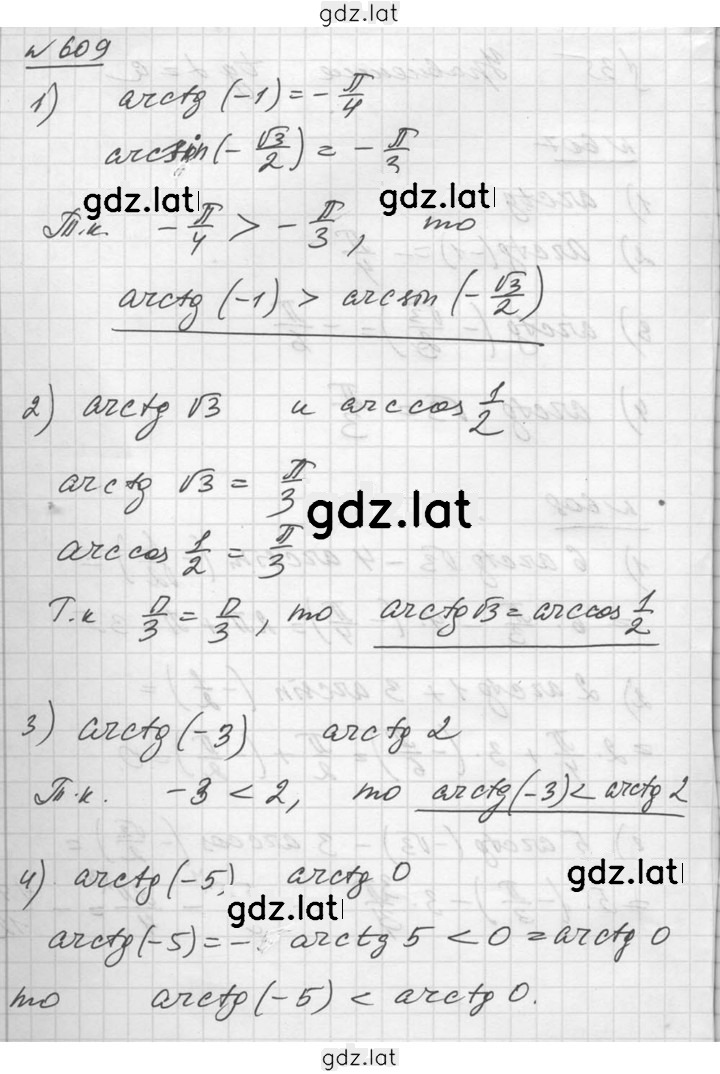 gdz.lat
№ 609
1) arctg (-1) = -π/4
arcsin(-√3/2) = -π/3
gdz.lat gdz.lat
Т.к. -π/4 > -π/3, то
arctg (-1) > arcsin (-√3/2)
2) arctg √3 и arccos 1/2
arctg √3 = π/3
gdz.lat
arccos 1/2 = π/3
Т.к π/3 = π/3, то arctg √3 = arccos 1/2
3) arctg (-3) arctg 2
Т.к. -3 < 2, то arctg(-3) < arctg 2
4) arctg (-5) arctg 0
gdz.lat
gdz.lat
arctg (-5) = - arctg 5 < 0 = arctg 0
то arctg (-5) < arctg 0.
gdz.lat